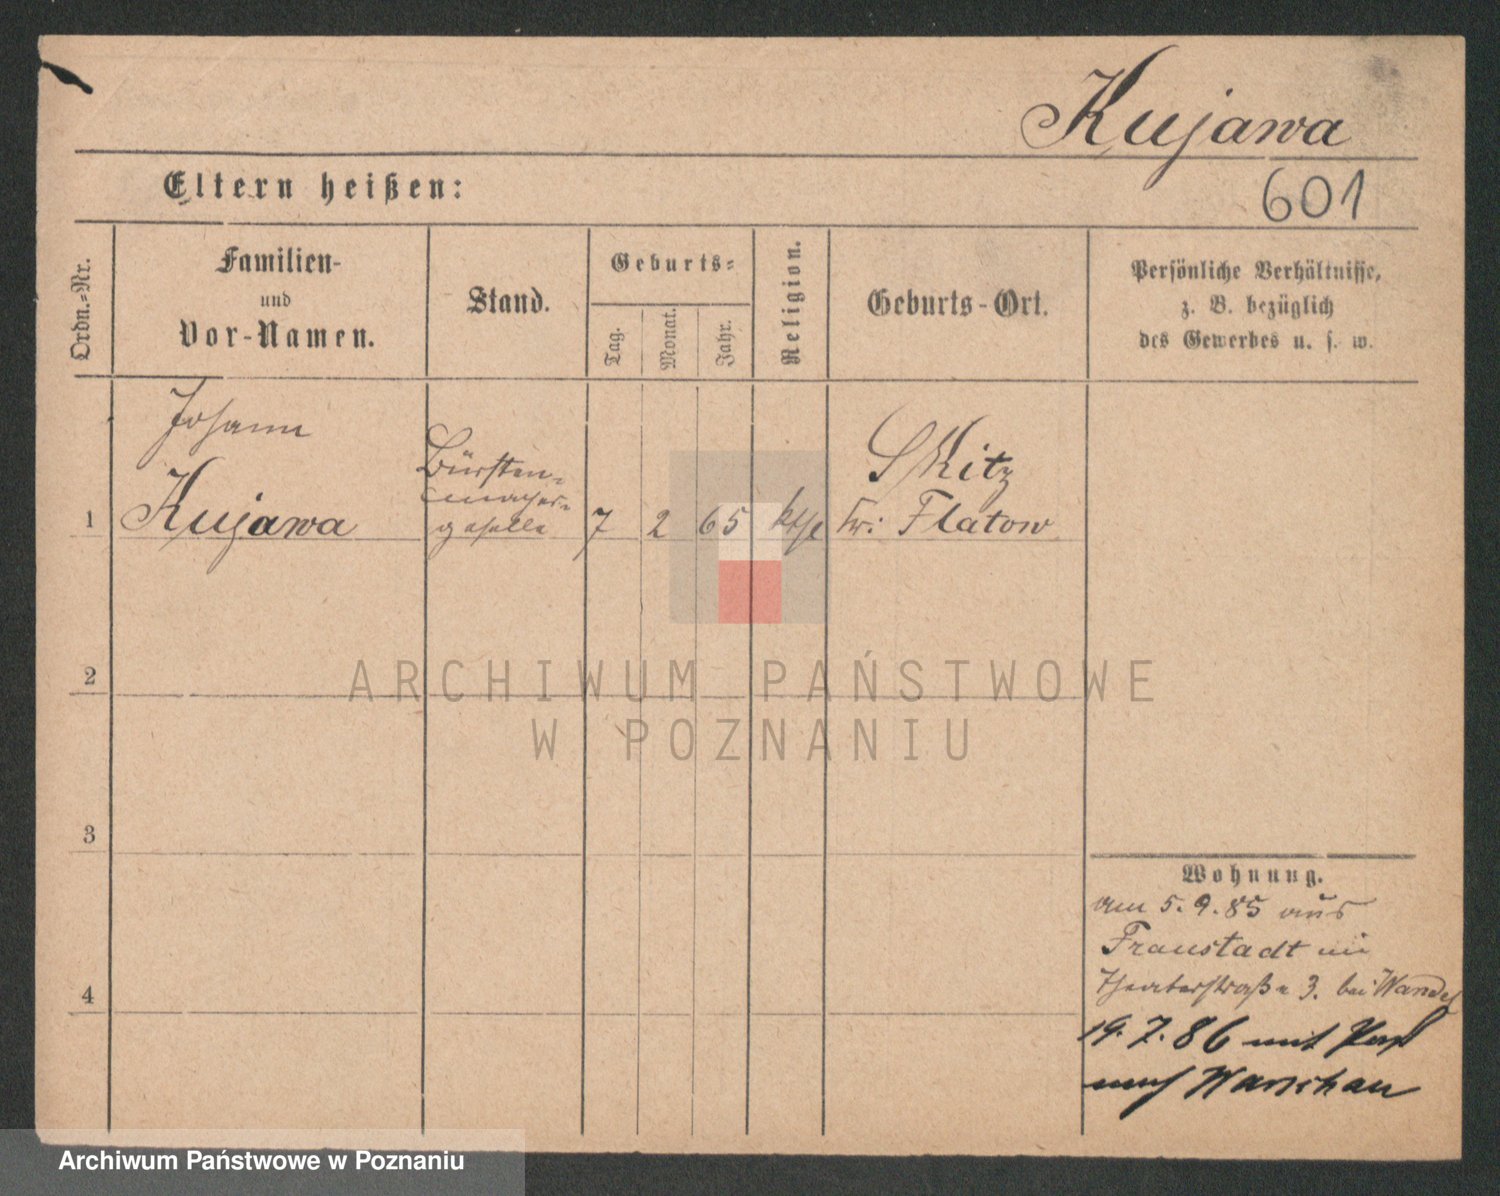 Kujawa
Eltern heißen:
601
Ordn.-Nr.
Familien-
und
Vor-Namen.
Stand.
Geburts-
Tag.
Monat.
Jahr.
Religion.
Geburts-Ort.
Persönliche Verhältnisse,
z. B. bezüglich
des Gewerbes u. s. w.
1
Johann
Kujawa
Bürsten-
macher-
geselle
7
2
65
kth
Skitz
Kr: Flatow
2
3
4
Wohnung.
am 5.9.85 aus
Fraustadt in
Theaterstraße 3. bei Wandel
19.7.86 mit Paß
nach Warschau
ARCHIWUM PAŃSTWOWE
W POZNANIU
Archiwum Państwowe w Poznaniu